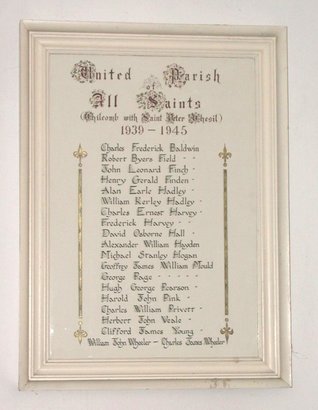 United Parish
of
All Saints
(Chilcomb with Saint Peter Chesil)
1939 - 1945
Charles Frederick Baldwin
Robert Byers Field - -
John Leonard Finch -
Henry Gerald Finden -
Alan Earle Hadley -
William Kerley Hadley -
Charles Ernest Harvey -
Frederick Harvey - -
David Osborne Hall -
Alexander William Hayden
Michael Stanley Hogan
Geoffrey James William Mould
George Page - - - - -
Hugh George Pearson -
Harold John Pink -
Charles William Privett -
Herbert John Veale -
Clifford James Young -
William John Wheeler - Charles James Wheeler